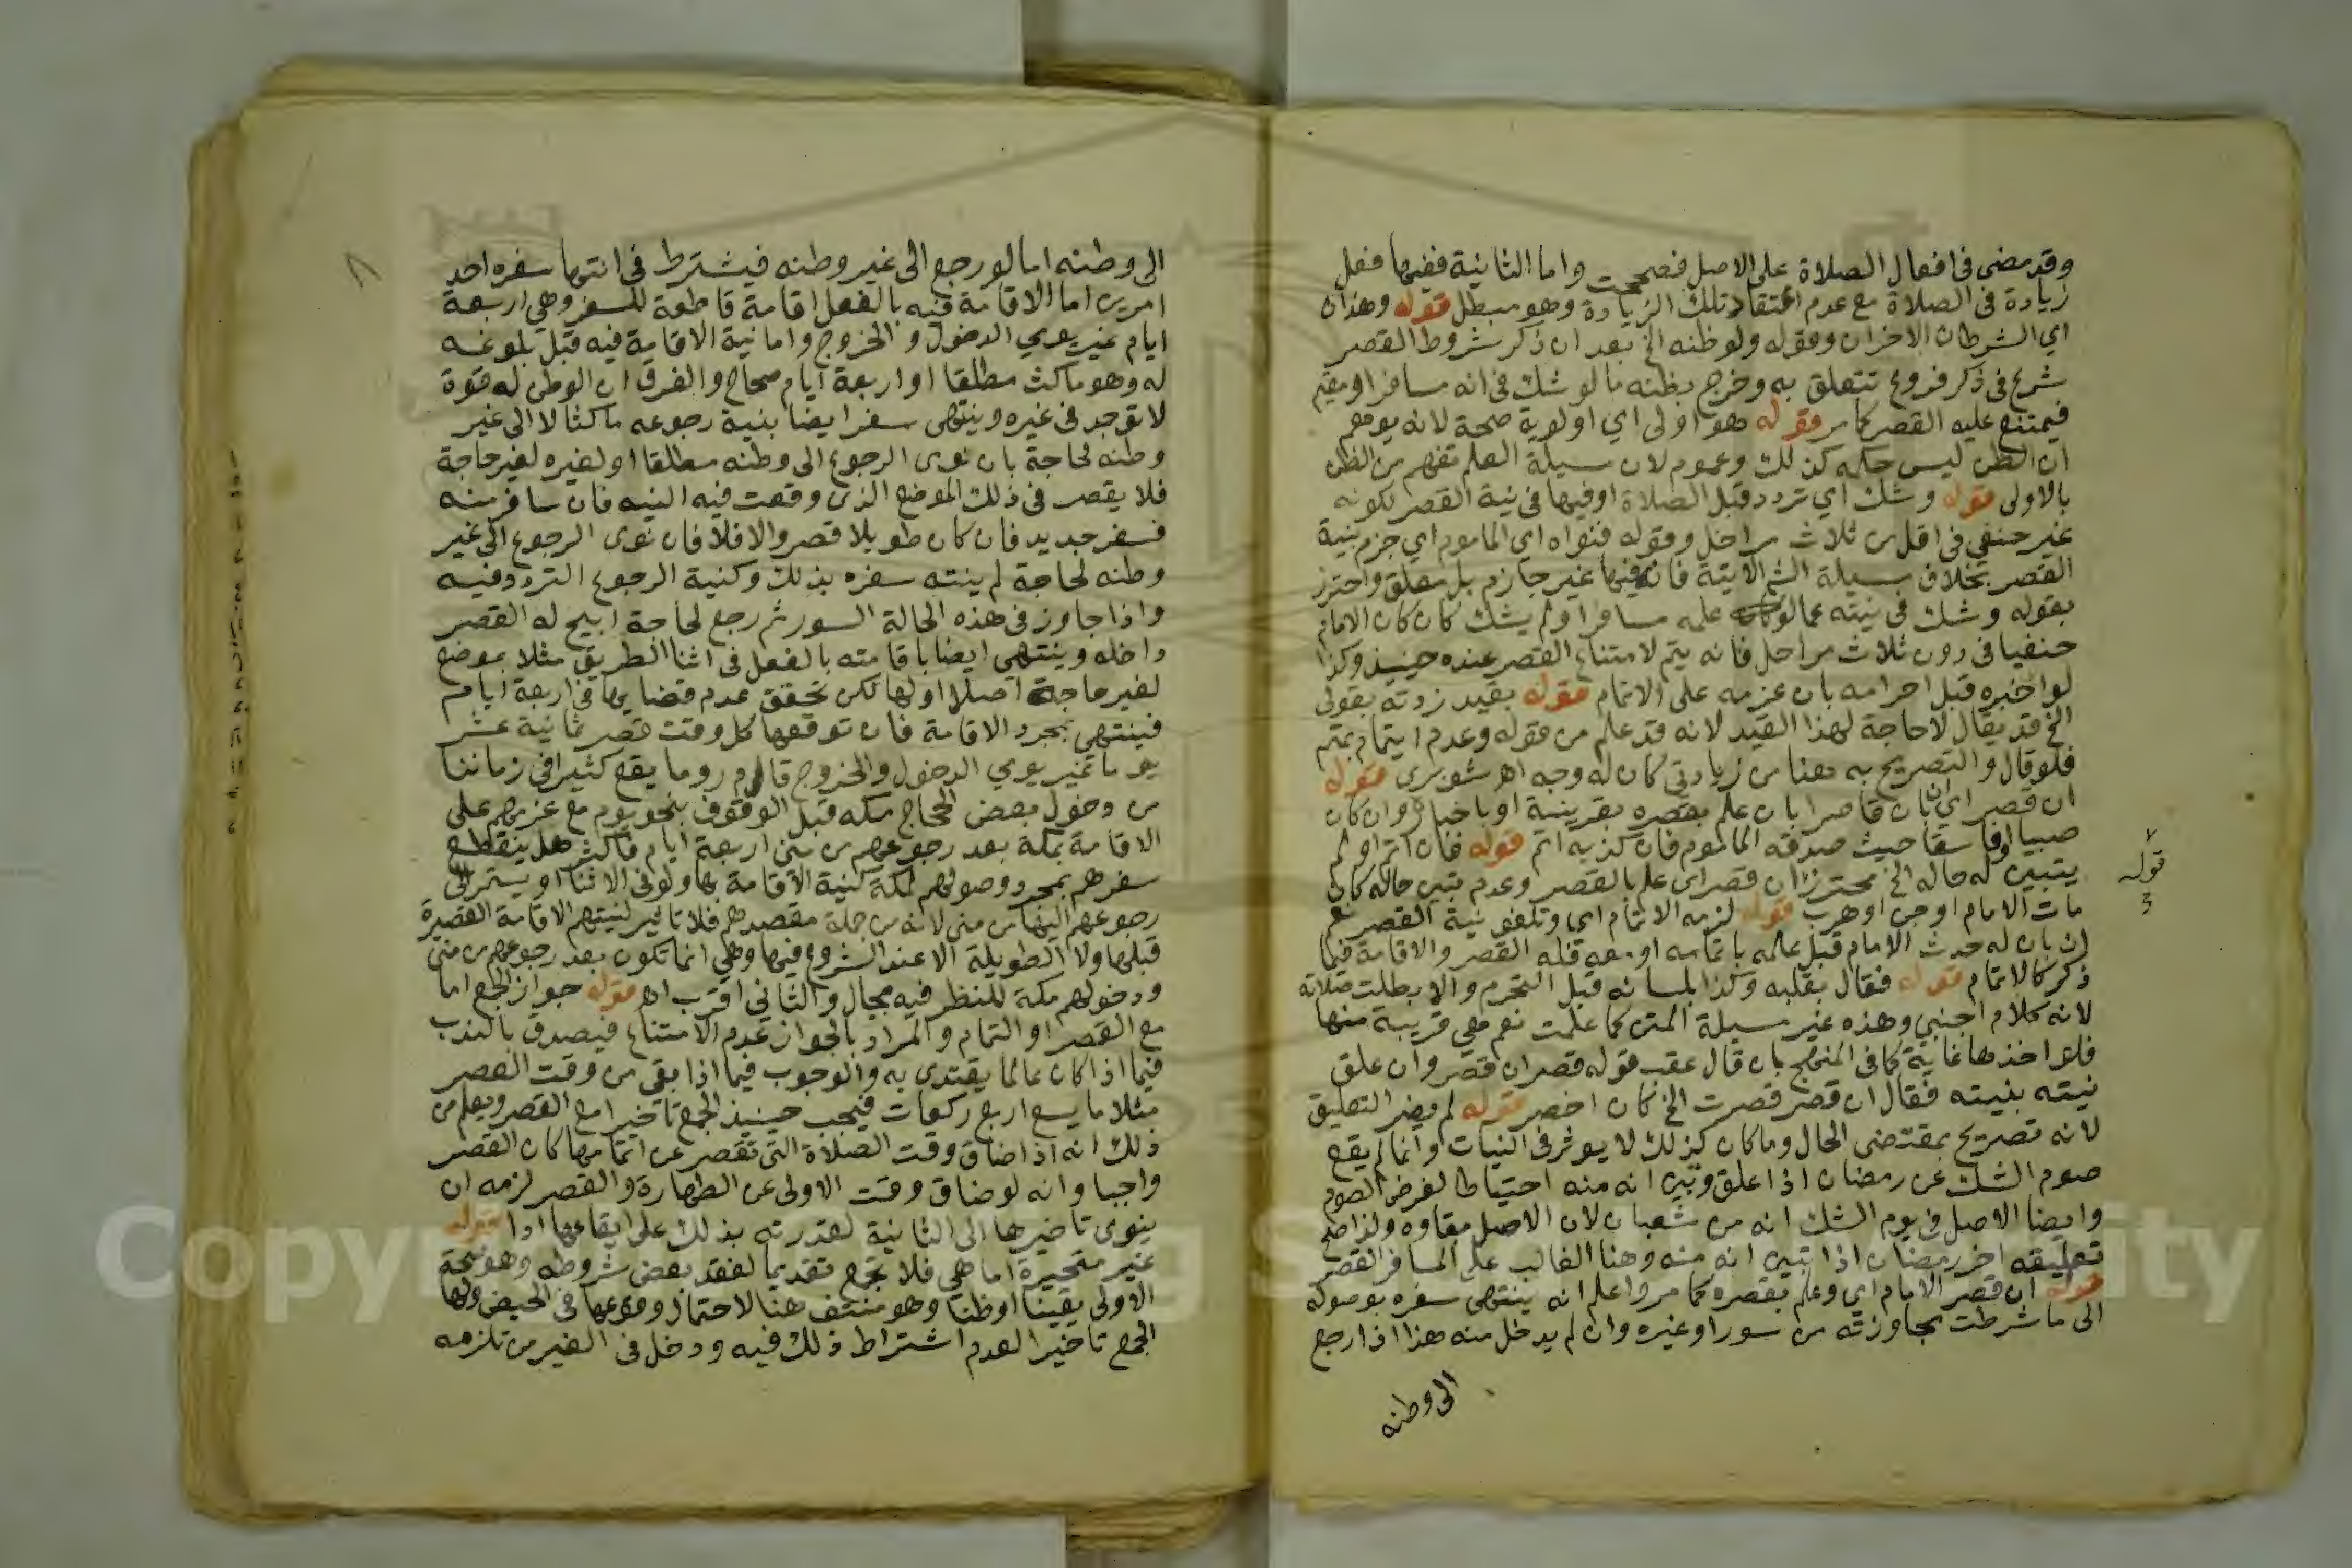 وقد مضى في افعال الصلاة على الاصل فصحت واما الثانية ففيها فعل
زيادة في الصلاة مع عدم اعتقاد تلك الزيادة وهو مبطل قوله وهذان
اي الشرطان الاخران وقوله ولو ظنه الخ بعد ان ذكر شروط القصر
شرع في ذكر فروع تتعلق به وخرج بظنه ما لو شك في انه مسافر او مقيم
فيمتنع عليه القصر كما مر قوله هو اولى اي اولوية صحة لانه يوهم
ان الظن ليس حكمه كذلك وعموم لان مسيلة العلم تفهم من الظن
بالاولى قوله وشك اي تردد قبل الصلاة او فيها في نية القصر لكونه
غير حنفي في اقل من ثلاث مراحل وقوله فنواه اي الماموم اي جزم بنية
القصر بخلاف مسيلة الشم الاتية فانه فيها غير جازم بل معلق واحترز
بقوله وشك في نيته عما لو علمه مسافرا ولم يشك كان كان الامام
حنفيا في دون ثلاث مراحل فانه يتم لامتناع القصر عنده حينيذ وكذا
لو اخبره قبل احرامه بان عزمه على الاتمام قوله بقيد زدته بقولي
الخ قد يقال لا حاجة لهذا القيد لانه قد علم من قوله وعدم ايتمام بمتم
فلو قال والتصريح به هنا من زيادتي كان له وجه اهـ شوبري قوله
ان قصر اي بان قاصرا بان علم بقصره بقرينة او باخباره وان كان
صبيا او فاسقا حيث صدقه الماموم فان كذبه اتم قوله فان اتم او لم
يتبين له حاله الخ محترز ان قصر اي علم بالقصر وعدم تبين حاله كان
مات الامام او جن او هرب قوله لزمه الاتمام اي وتلغو نية القصر نعم
ان بان له حدث الامام قبل علمه باتمامه او معه فله القصر والاقامة فيما
ذكر كالاتمام قوله فقال بقلبه وكذا بلسانه قبل التحرم والا بطلت صلاته
لانه كلام اجنبي وهذه غير مسيلة المتن كما علمت نعم هي قريبة منها
فلو اخذها غاية كما في المنهج بان قال عقب قوله قصر ان قصر وان علق
نيته بنيته فقال ان قصر قصرت الخ كان اخصر قوله لم يضر التعليق
لانه تصريح بمقتضى الحال وما كان كذلك لا يوثر في النيات وانما لم يقع
صوم الشك عن رمضان اذا علق وتبين انه منه احتياطا لفرض الصوم
وايضا الاصل في يوم الشك انه من شعبان لان الاصل بقاوه ولذا صح
تعليقه اخر رمضان اذا تبين انه منه وهنا الغالب على المسافر القصر
قوله ان قصر الامام اي وعلم بقصره كما مر واعلم انه ينتهي سفره بوصوله
الى ما شرطت مجاوزته من سور او غيره وان لم يدخل منه هذا اذا رجع
الى وطنه
قوله
الى وطنه اما لو رجع الى غير وطنه فيشترط في انتها سفره احد
امرين اما الاقامة فيه بالفعل اقامة قاطعة للسفر وهي اربعة
ايام غير يومي الدخول والخروج واما نية الاقامة فيه قبل بلوغه
له وهو ماكث مطلقا او اربعة ايام صحاح والفرق ان الوطن له قوة
لا توجد في غيره وينتهى سفر ايضا بنية رجوعه ماكثا لا الى غير
وطنه لحاجة بان نوى الرجوع الى وطنه مطلقا او لغيره لغير حاجة
فلا يقصر في ذلك الموضع الذي وقعت فيه النيه فان سافر منه
فسفر جديد فان كان طويلا قصر والا فلا فان نوى الرجوع الى غير
وطنه لحاجة لم ينته سفره بذلك وكنية الرجوع التردد فيه
واذا جاوز في هذه الحالة السور ثم رجع لحاجة ابيح له القصر
داخله وينتهي ايضا باقامته بالفعل في اثنا الطريق مثلا بموضع
لغير حاجة اصلا او لها لكن تحقق عدم قضايها في اربعة ايام
فينتهي بمجرد الاقامة فان توقعها كل وقت قصر ثمانية عشر
يوما غير يومي الدخول والخروج قال م ر وما يقع كثيرا في زماننا
من دخول بعض الحجاج مكه قبل الوقوف بنحو يوم مع عزمهم على
الاقامة بمكة بعد رجوعهم من منى اربعة ايام فاكثر هل ينقطع
سفرهم بمجرد وصولهم لمكة لنية الاقامة بها ولو في الاثنا او يستمر الى
رجوعهم اليها من منى لانه من جملة مقصدهم فلا تاثير لنيتهم الاقامة القصيرة
قبلها ولا الطويلة الا عند الشروع فيها وهي انما تكون بعد رجوعهم من منى
ودخولهم مكة للنظر فيه مجال والثاني اقرب اهـ قوله جواز الجمع اما
مع القصر او التمام والمراد بالجواز عدم الامتناع فيصدق بالندب
فيما اذا كان عالما يقتدى به والوجوب فيما اذا بقى من وقت العصر
مثلا ما يسع اربع ركعات فيجب حينيذ الجمع تاخيرا مع القصر ويعلم من
ذلك انه اذا ضاق وقت الصلاة التي تقصر عن اتمامها كان القصر
واجبا وانه لو ضاق وقت الاولى عن الطهارة والقصر لزمه ان
ينوي تاخيرها الى الثانية لقدرته بذلك على ايقاعها ادا قوله
غير متحيرة اما هي فلا تجمع تقديما لفقد بعض شروطه وهو صحة
الاولى يقينا او ظنا وهو منتف هنا لاحتمال وقوعها في الحيض ولها
الجمع تاخيرا لعدم اشتراط ذلك فيه ودخل في الغير من تلزمه